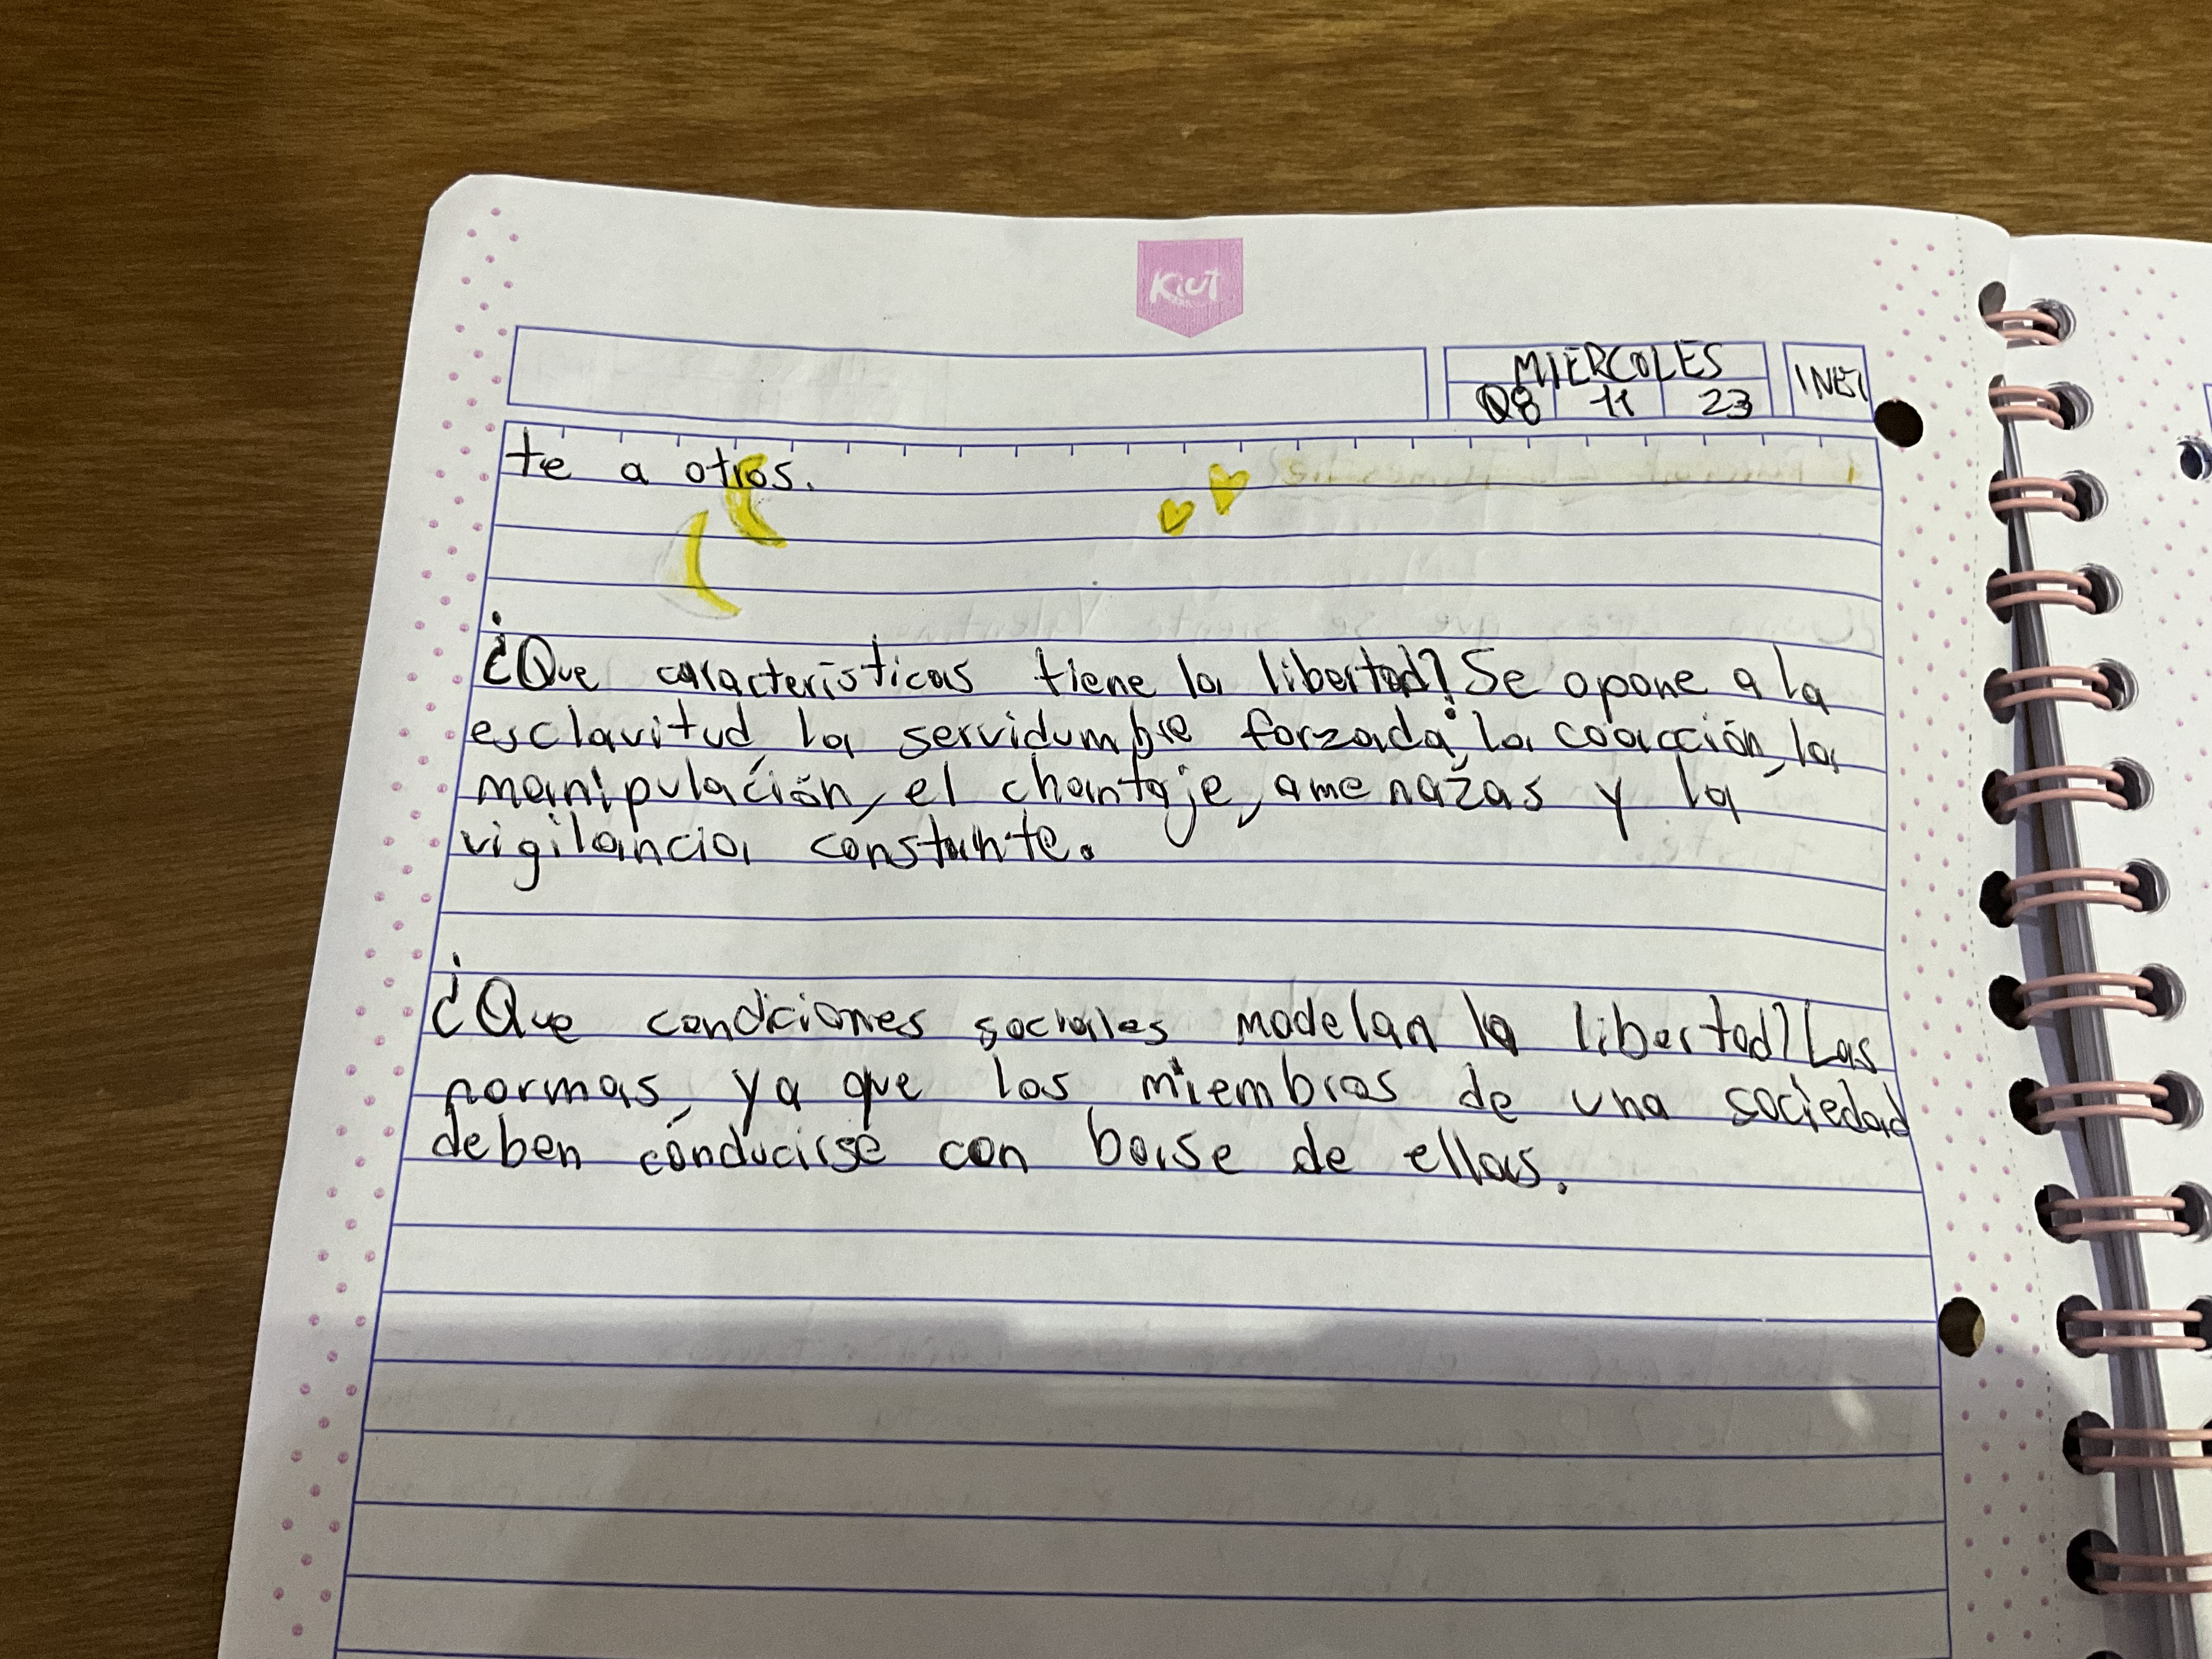 Kiut
MIERCOLES
08 11 23
te a otros.
¿Que características tiene la libertad? Se opone a la
esclavitud, la servidumbre forzada, la coacción, la
manipulación, el chantaje, amenazas y la
vigilancia constante.
¿Que condiciones sociales modelan la libertad? Las
normas, ya que los miembros de una sociedad
deben conducirse con base de ellas.